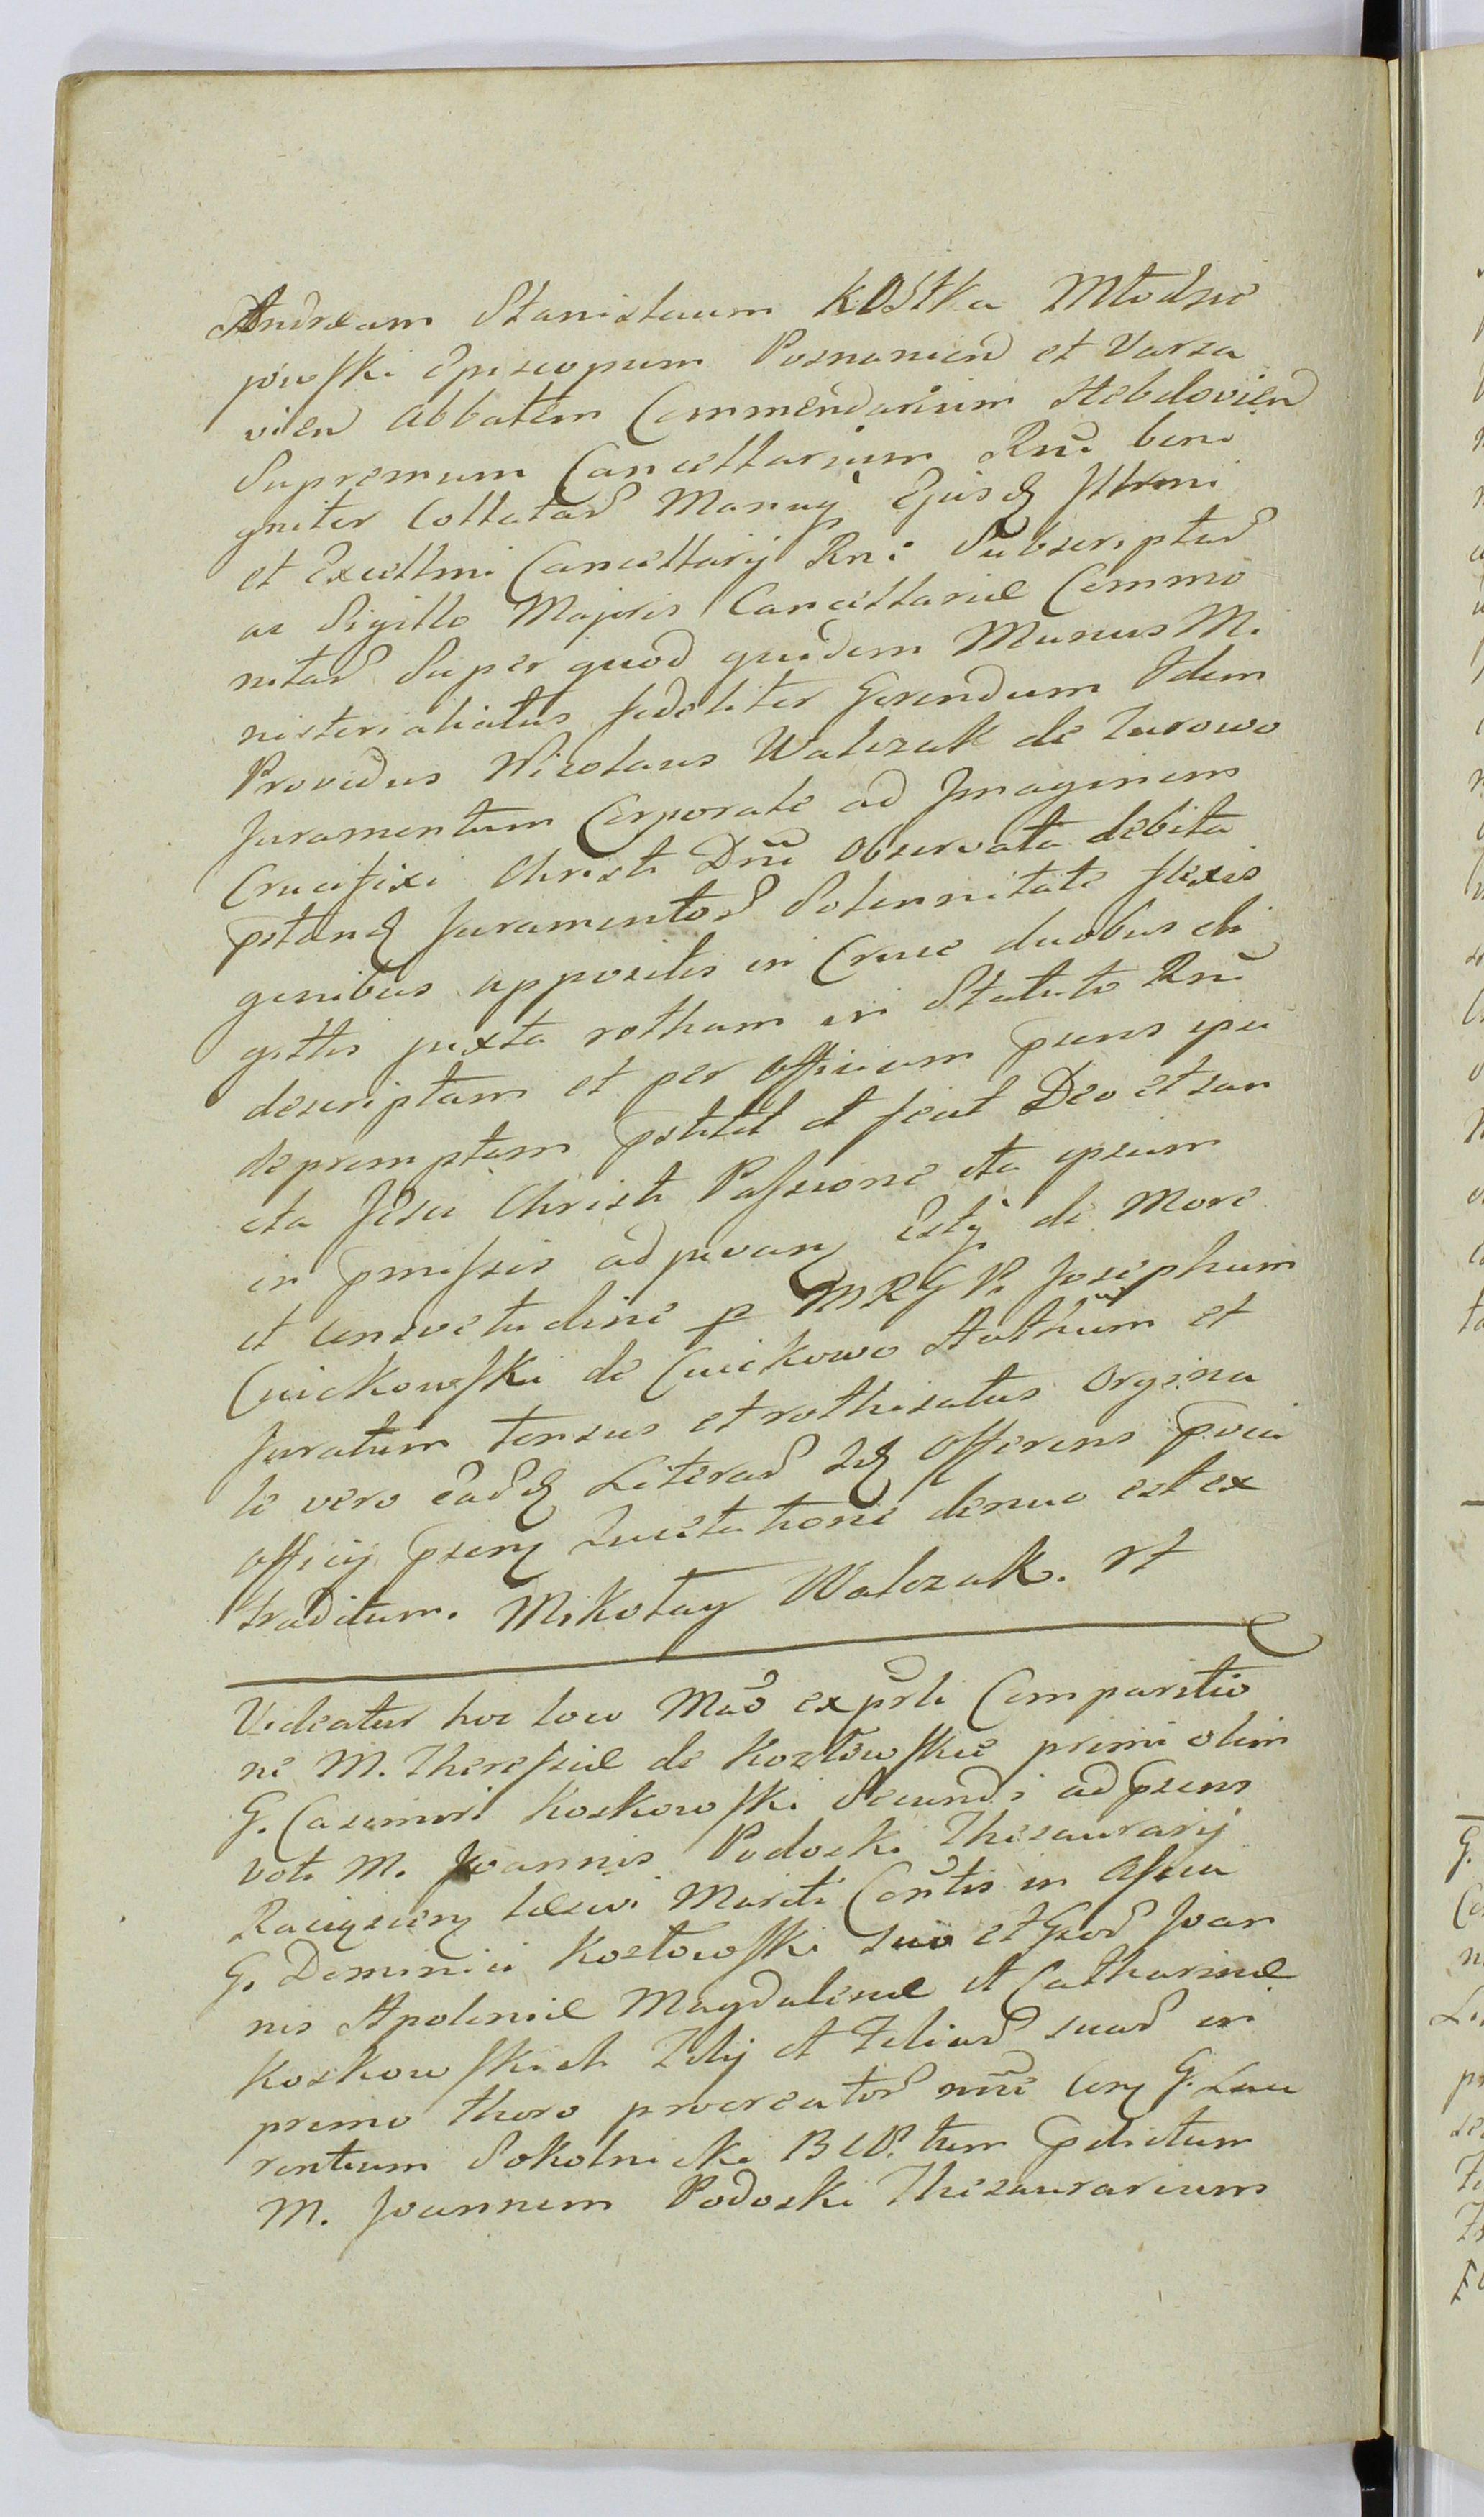 Andream Stanislaum KOStka Młodzie
jowski Episcopum Posnanien et Varsa
vien Abbatem Commendarium Hebdovien
Supremum Cancellarium Rni beni
gniter Collatas Manuq Ejusdq Illmi
et Excellmi Cancellarij Rni Subscriptas
ac Sigillo Majoris Cancellariæ Commu
nitas Super quod quidem Munus Mi
nisterialiatus fideliter Gerendum Idem
Providus Nicolaus Walczak de Zurowo
Juramentum Corporale ad Imaginem
Crucifixi Christi Dni observata debita
pstandq Juramentor Solennitate flexis
genibus appositis in Cruce duobus di
gittis juxta rotham in Statuto Rni
descriptam et per officium psens ipsi
depromptam pstitit et fecit Deo et san
cta Jesu Christi Passione ita ipsum
in pmissis adjuvanq Estq de More
et consvetudine p MRGP Josephum
Cwickowski de Cwickowo Nothum et
Juratum tonsus et rothisatus Orygina
le vero eadq Literar Idq Offerens pvia
officij psenq Quietatione denuo est ex
traditum. Mikołay Walczak. rt
Videatur hoc loco Mao exprli Comparitio
ne M. Theressiæ de Kozłowskie primi olim
G. Casimiri Koskowski Secundi ad psens
voti M. Joannis Podoski Thesaurarij
Raciązienq Ilesivi Mariti Contis in Assia
G. Dominici Kozłowski suo et Gsor Joan
nis Apoloniæ Magdalenæ et Catharinæ
Koskowskich Filij et Filiar suar in
primo thoro procreator nnie conq G. Lau
rentium Sokolnicki BCP. tum pdictum
M. Joannem Podoski Thesaurarium